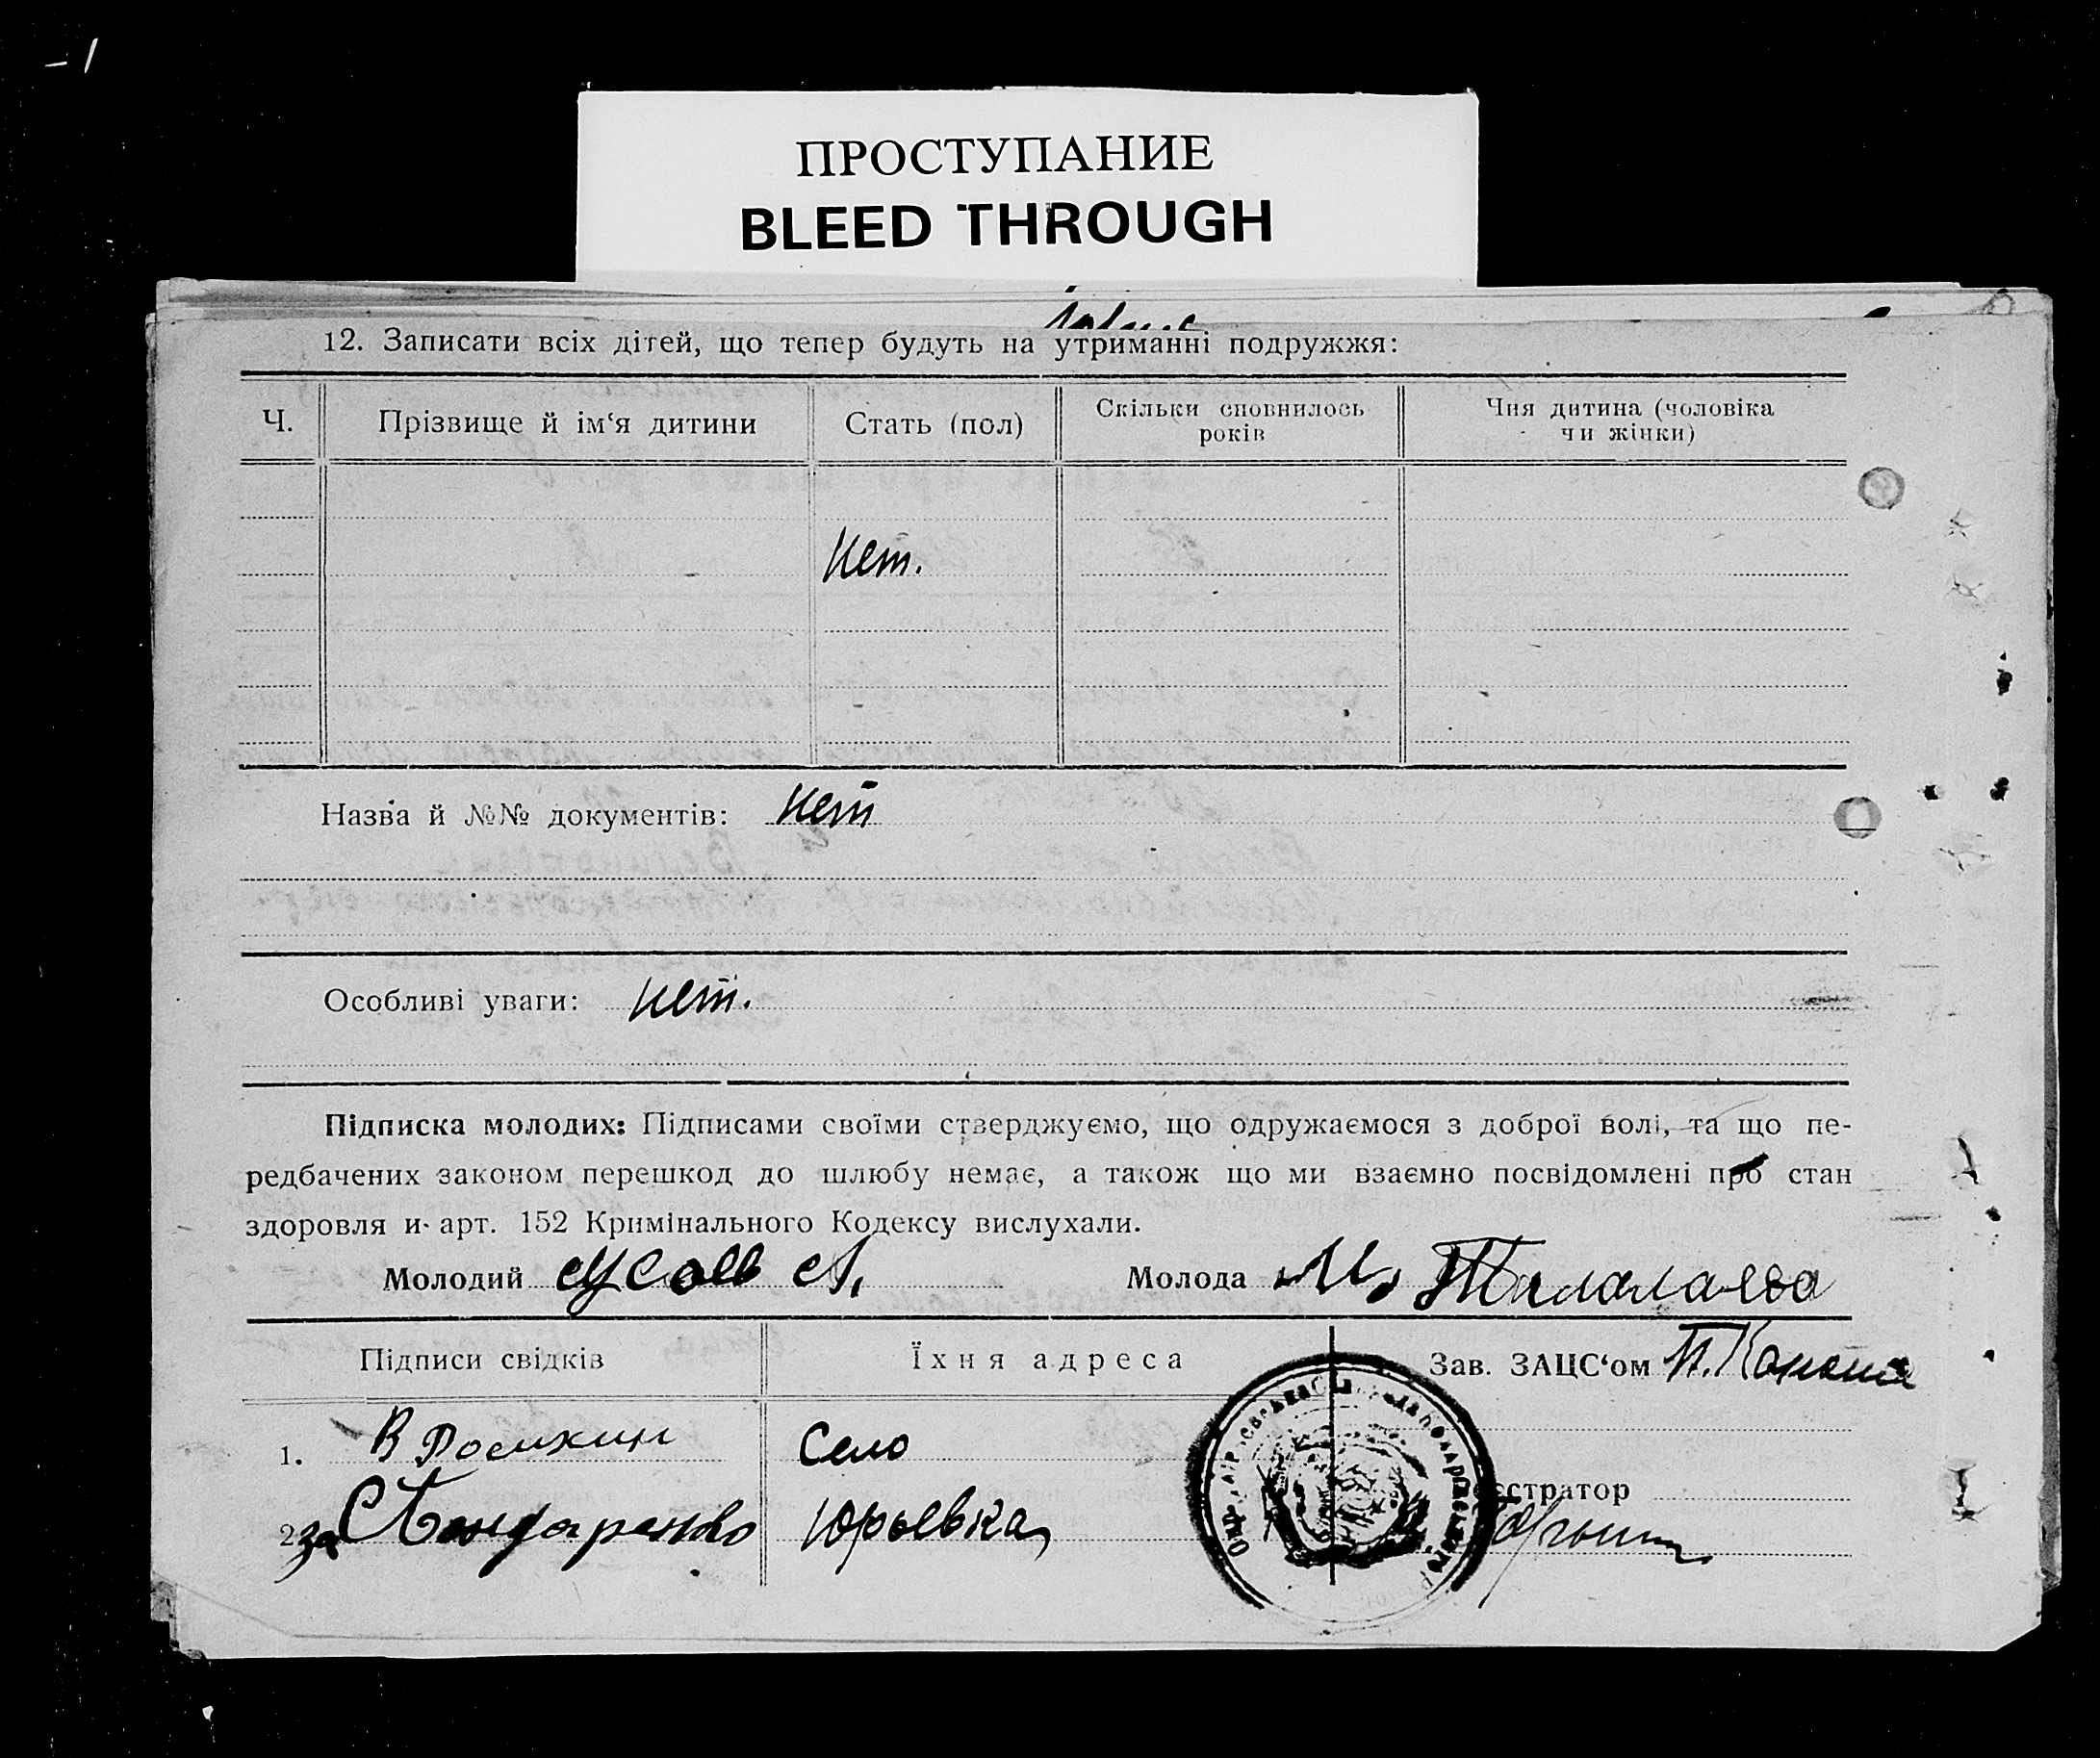 – 1
ПРОСТУПАНИЕ
BLEED THROUGH
12. Записати всіх дітей, що тепер будуть на утриманні подружжя:
Ч.
Прізвище й ім‘я дитини
Стать (пол)
Скільки сповнилось
років
Чия дитина (чоловіка
чи жінки)
нет.
Назва й №№ документів: нет
Особливі уваги: нет.
Підписка молодих: Підписами своїми стверджуємо, що одружаємося з доброї волі, та що пе-
редбачених законом перешкод до шлюбу немає, а також що ми взаємно посвідомлені про стан
здоровля и арт. 152 Кримінального Кодексу вислухали.
Молодий Усов А. Молода М. Талалаева
Підписи свідків
Їхня адреса
Зав. ЗАЦС‘ом П.
1. В
Село
2. за
Юрьевка
стратор